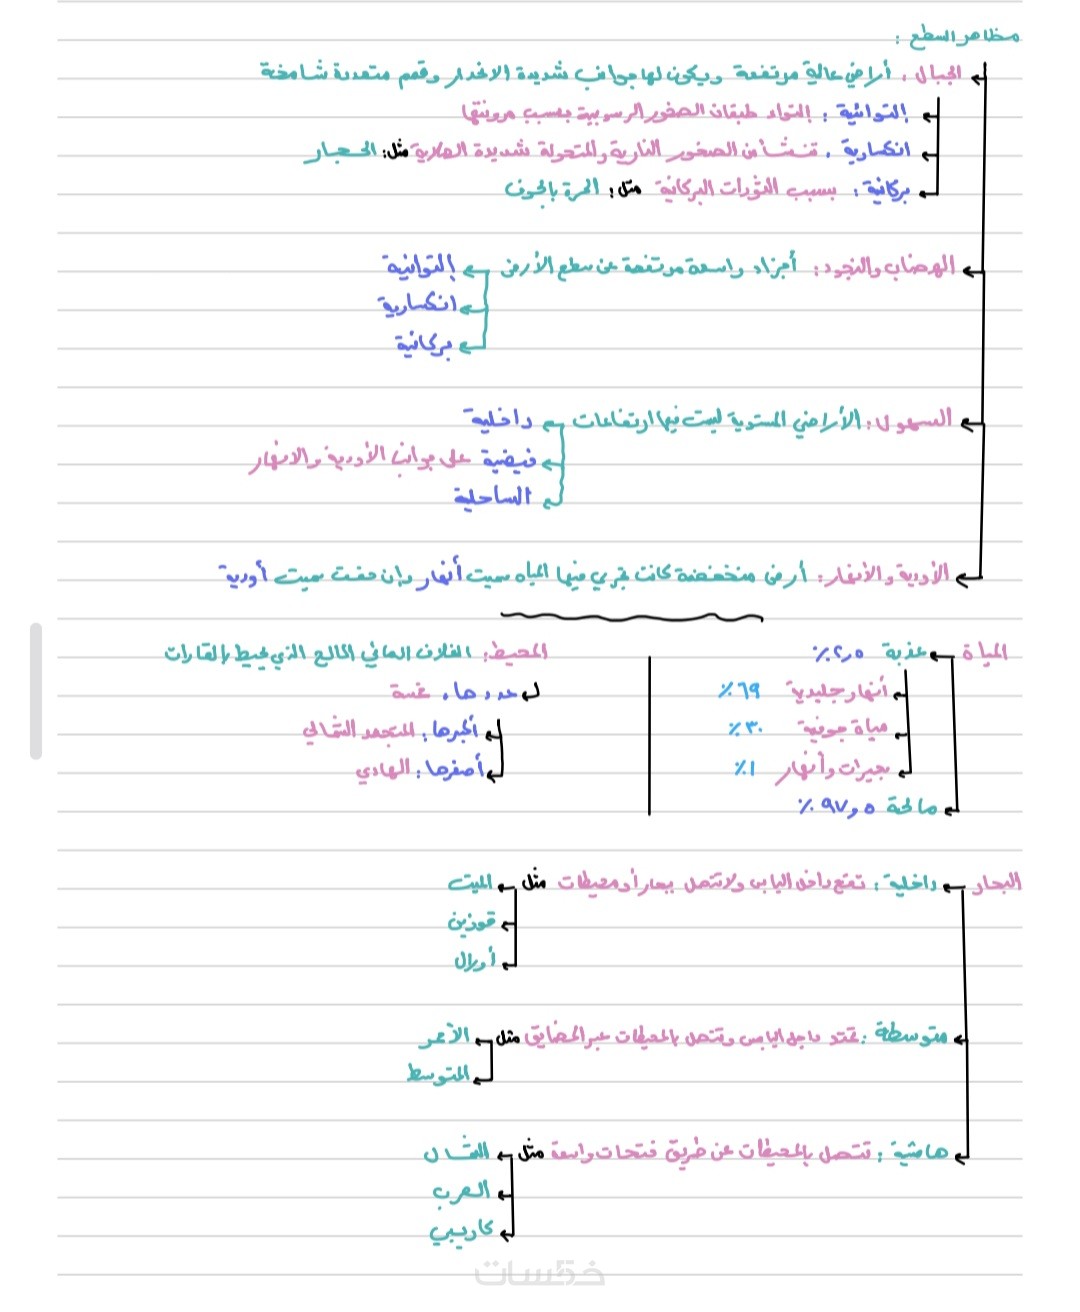 مظاهر السطح :
الجبال : أراضي عالية مرتفعة ويكون لها جوانب شديدة الانحدار وقمم متعددة شامخة
إلتوائية : إلتواء طبقات الصخور الرسوبية بسبب مرونتها
انكسارية : تنشأ من الصخور النارية والمتحولة شديدة الصلابة مثل: الحجاز
بركانية : بسبب الثورات البركانية مثل: الحرة بالجوف
الهضاب والنجود : أجزاء واسعة مرتفعة عن سطح الأرض إلتوائية
انكسارية
بركانية
السهول : الأراضي المستوية ليست فيها ارتفاعات داخلية
فيضية على جوانب الأودية والانهار
الساحلية
الأودية والأنهار : أرض منخفضة كانت تجري فيها المياه سميت أنهار وإن جفت سميت أودية
المياة عذبة ٢,٥٪
أنهار جليدية ٦٩٪
مياة جوفية ٣٠٪
بحيرات وأنهار ١٪
مالحة ٩٧,٥٪
المحيط : الغلاف المائي المالح الذي يحيط بالقارات
عددها : خمسة
أكبرها : المتجمد الشمالي
أصغرها : الهادي
البحار داخلية : تقع داخل اليابس ولا تتصل ببحار أو محيطات مثل الميت
قزوين
أورال
متوسطة : تمتد داخل اليابس وتتصل بالمحيطات عبر المضايق مثل الأحمر
المتوسط
هامشية : تتصل بالمحيطات عن طريق فتحات واسعة مثل الشمال
العرب
كاريبي
خمسات